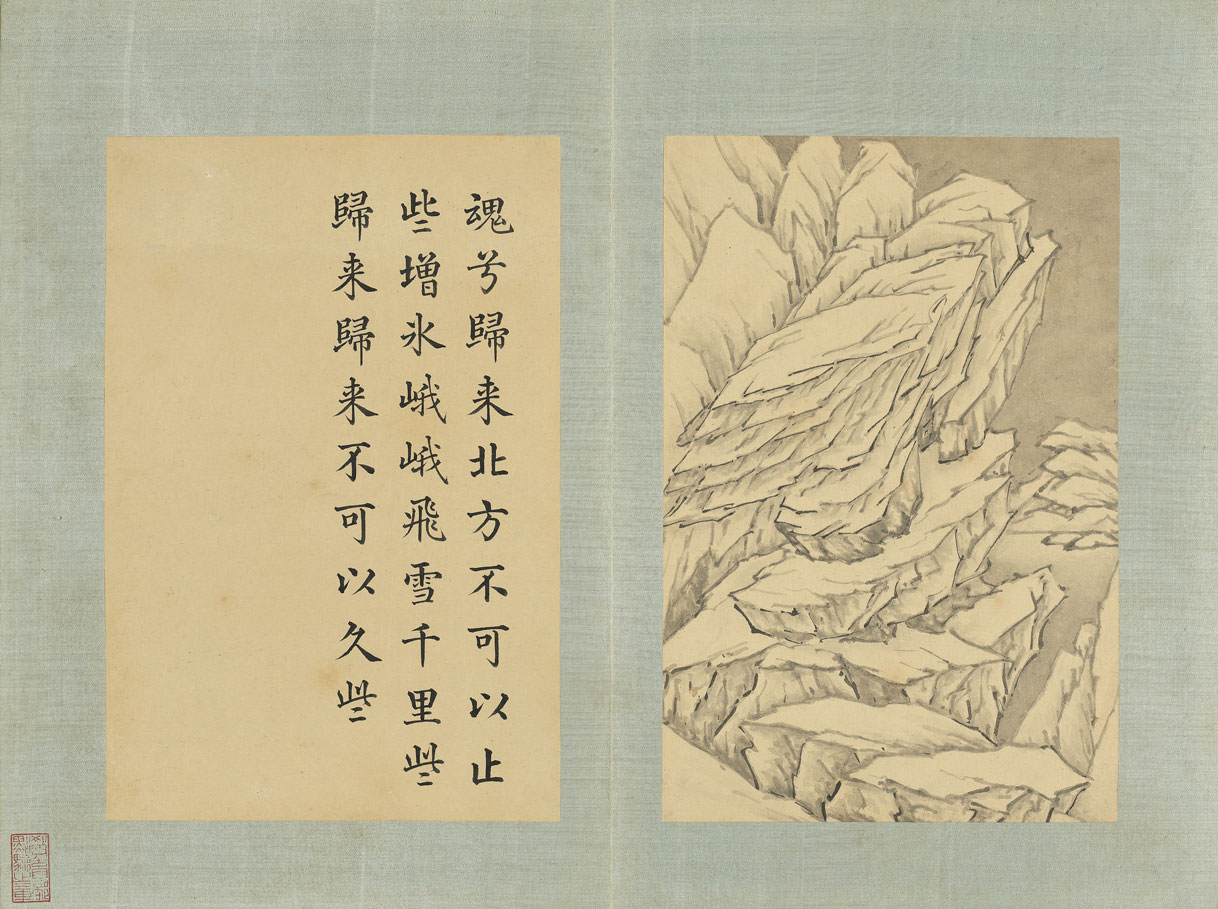 魂兮歸来北方不可以止
些增氷峨峨飛雪千里些
歸来歸来不可以久些